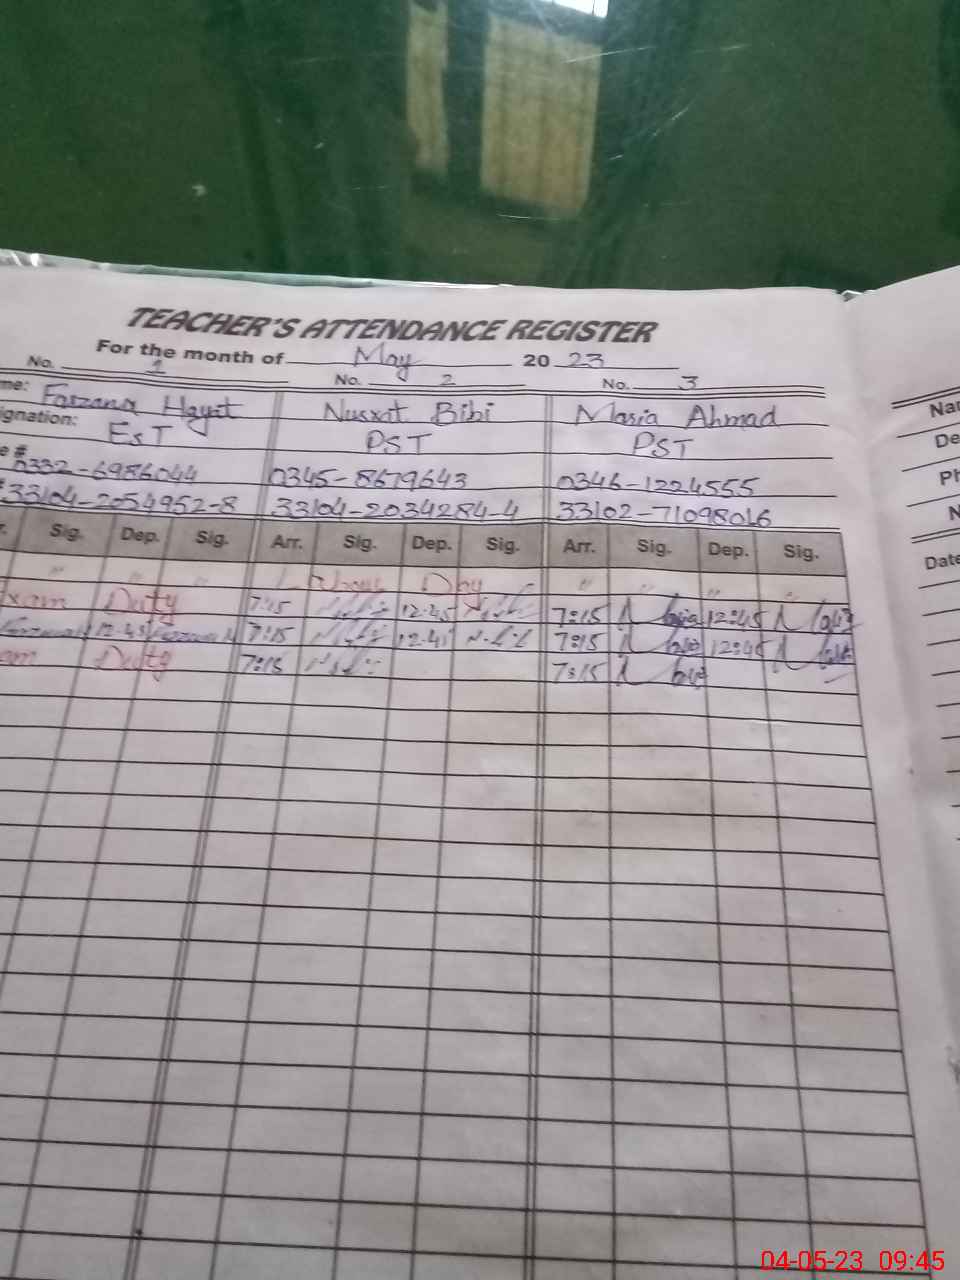 TEACHER'S ATTENDANCE REGISTER
For the month of May 2023
No. 1 No. 2 No. 3
me: Farzana Hayat Nusrat Bibi Maria Ahmad Nam
ignation: EST PST PST De
e # 0332-6986044 0345-8679643 0346-1224555 Ph
33104-2054952-8 33104-2034284-4 33102-71098016 N
r. Sig. Dep. Sig. Arr. Sig. Dep. Sig. Arr. Sig. Dep. Sig. Date
" " " Day " " " "
xam Duty 7:15 12:45 7:15 12:45
12:45 7:15 12:45 7:15 12:45
am Duty 7:15 7:15
04-05-23 09:45